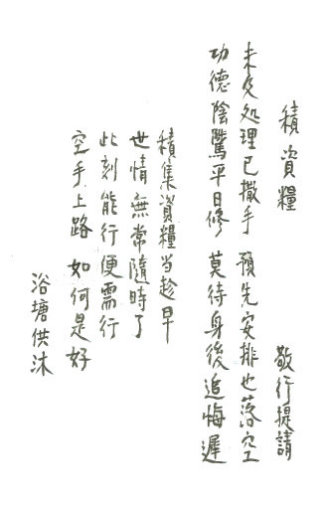 積資糧 敬行提請
未及処理已撒手 預先安排也落空
功德陰騭平日修 莫待身後追悔遲
積集資糧当趁早
世情無常隨時了
此刻能行便需行
空手上路 如何是好
浴塘供沐